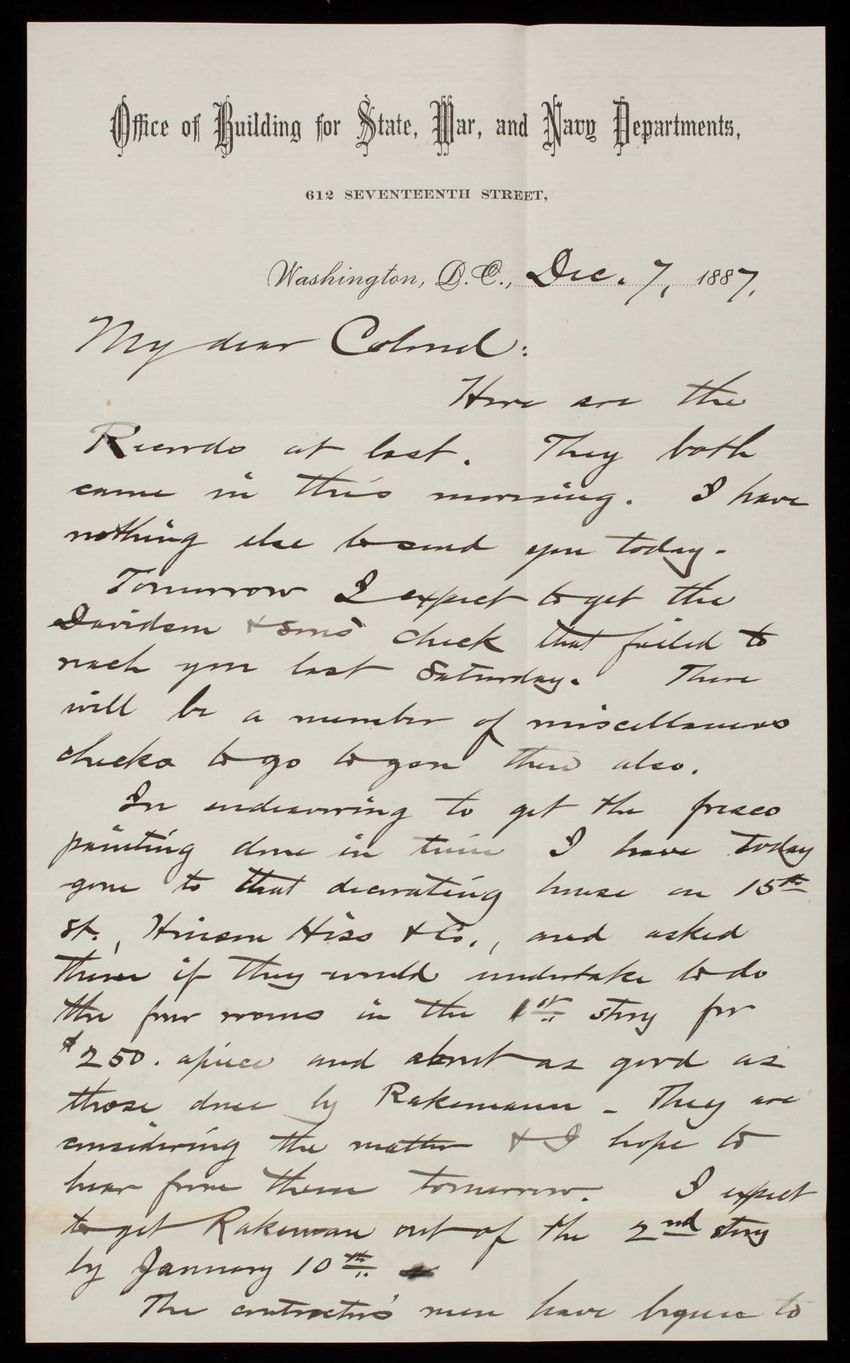 Office of Building for State, War, and Navy Departments,
612 SEVENTEENTH STREET,
Washington, D.C., Dec. 7, 1887.
My dear Colonel:
Here are the
Records at last. They both
came in this morning. I have
nothing else to send you today.
Tomorrow I expect to get the
Davidson & Sons' check that failed to
reach you last Saturday. There
will be a number of miscellaneous
checks to go to you then also.
In endeavoring to get the fresco
painting done in time I have today
gone to that decorating house on 15th
St., Hiss & Co., and asked
them if they would undertake to do
the four rooms in the 1st story for
$250. apiece and about as good as
those done by Rakemann - They are
considering the matter & I hope to
hear from them tomorrow. I expect
to get Rakemann out of the 2nd story
by January 10th.
The contractor's men have begun to